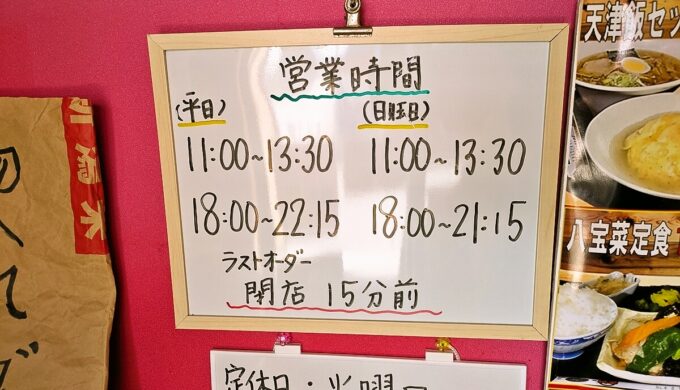 営業時間
(平日)
(日祝日)
11:00~13:30
11:00~13:30
18:00~22:15
18:00~21:15
ラストオーダー
閉店 15分前
定休日・火曜
天津飯セッ
八宝菜定食